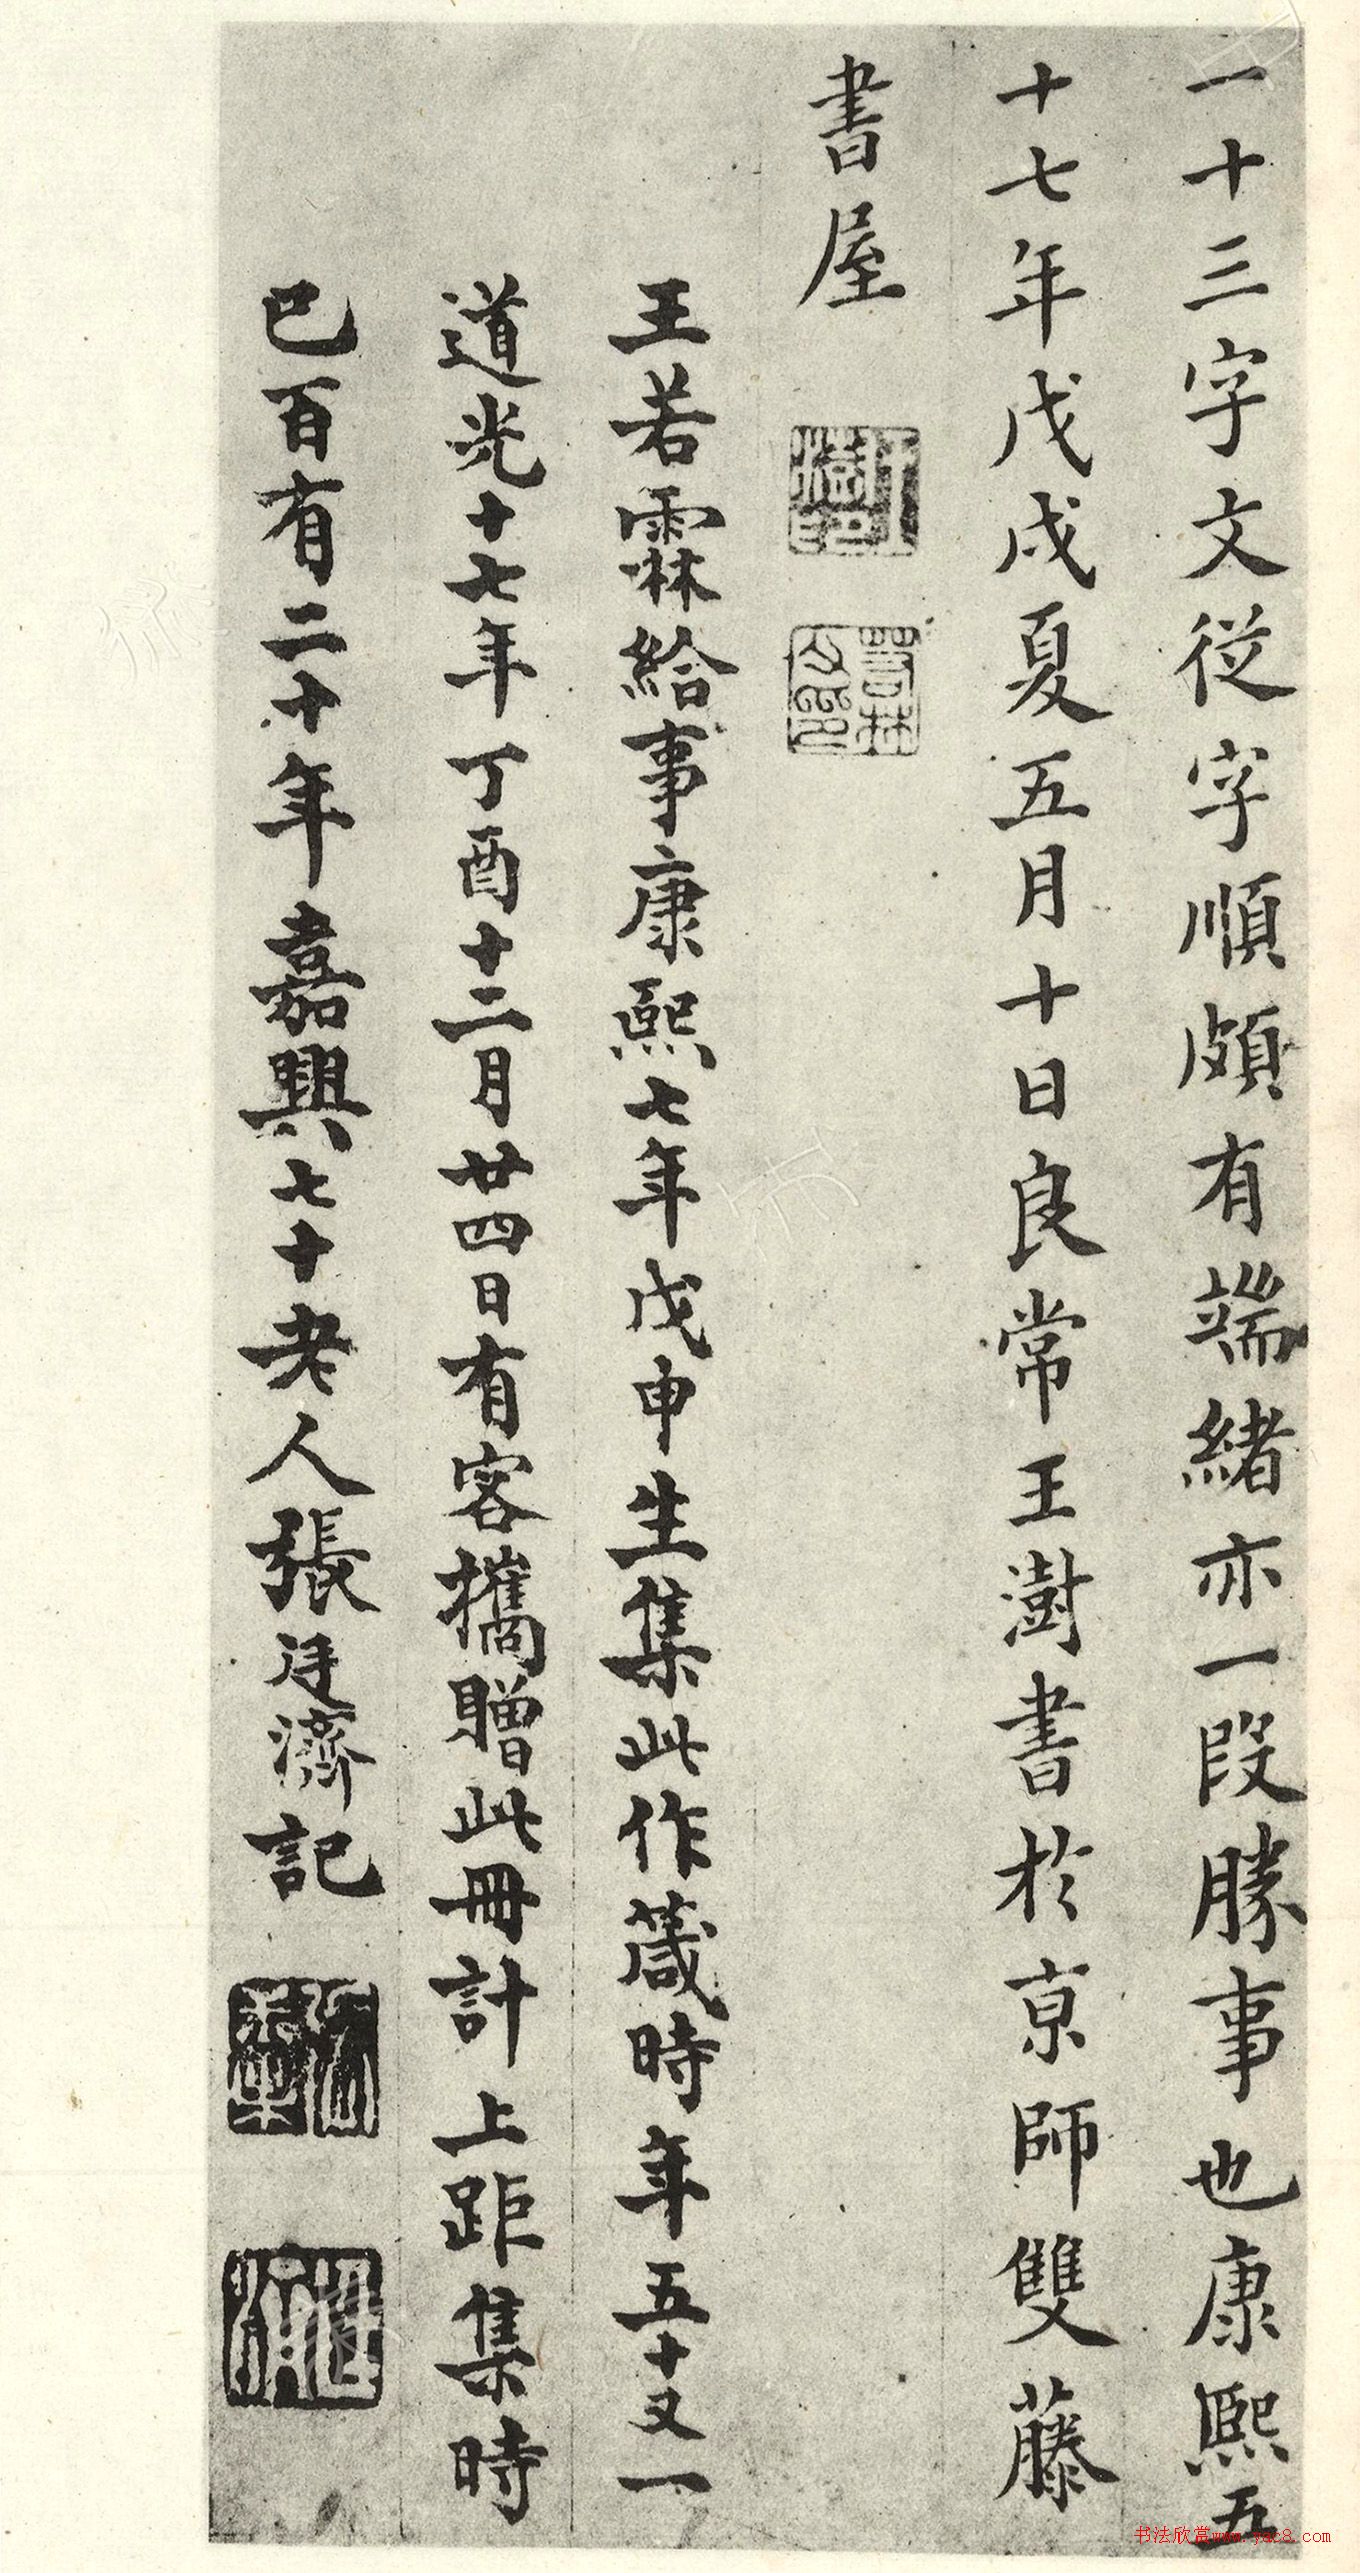 一十三字文從字順頗有端緒亦一段勝事也康熙五
十七年戊戌夏五月十日良常王澍書於京師雙藤
書屋
王澍印
若林
王若霖給事康熙七年戊申生集此作箴時年五十又一
道光十七年丁酉十二月廿四日有客攜贈此冊計上距集時
已百有二十年嘉興七十老人張廷濟記
书法欣赏www.yac8.com